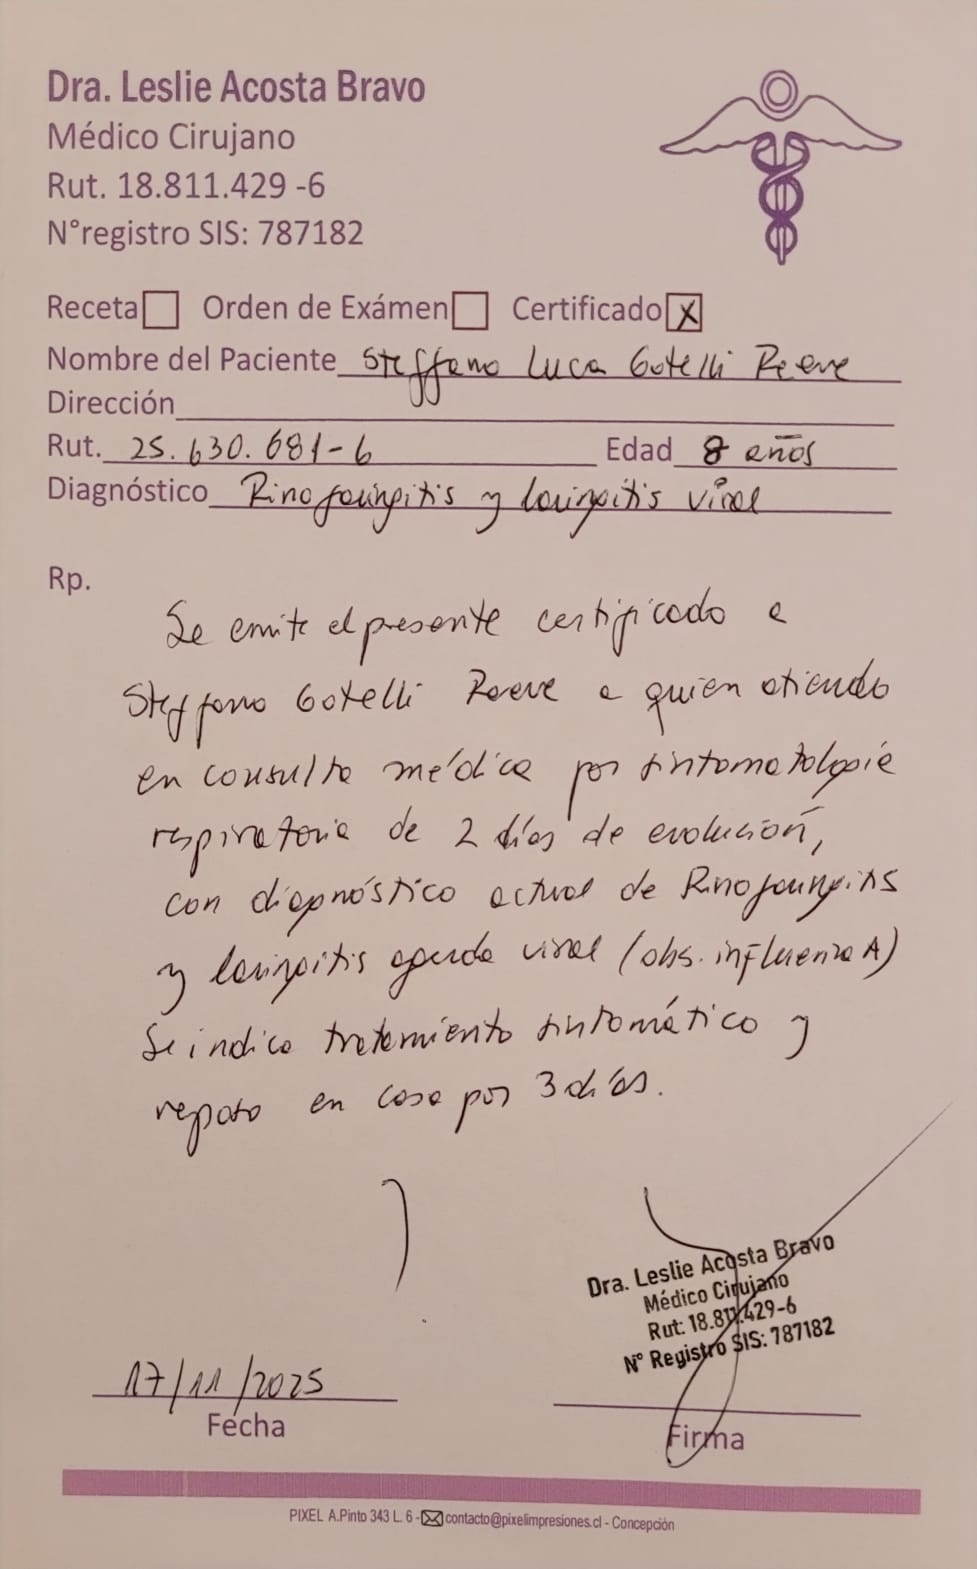 Dra. Leslie Acosta Bravo
Médico Cirujano
Rut. 18.811.429 -6
N°registro SIS: 787182
Receta Orden de Exámen Certificado X
Nombre del Paciente Steffano Luca Gotelli Reeve
Dirección
Rut. 25.630.681-6 Edad 8 años
Diagnóstico Rinofaringitis y laringitis viral
Rp.
Se emite el presente certificado a
Steffano Gotelli Reeve a quien atiendo
en consulta médica por sintomatología
respiratoria de 2 días de evolución,
con diagnóstico actual de Rinofaringitis
y laringitis aguda viral (obs. influenza A)
Se indica tratamiento sintomático y
reposo en casa por 3 días.
Dra. Leslie Acosta Bravo
Médico Cirujano
Rut: 18.811.429-6
N° Registro SIS: 787182
17/11/2025
Fecha
Firma
PIXEL A.Pinto 343 L. 6 - contacto@pixelimpresiones.cl - Concepción